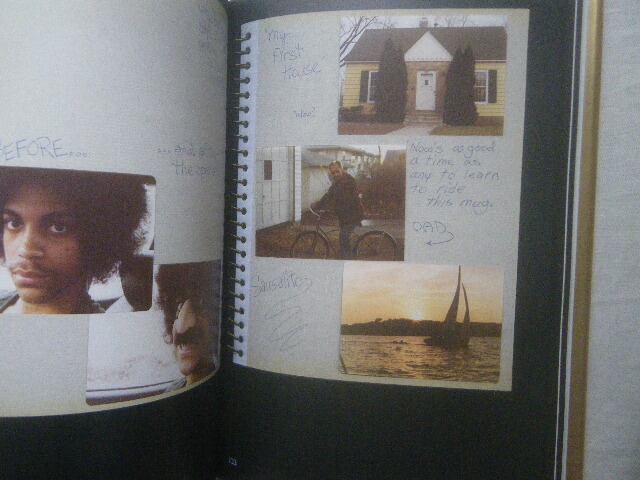 BEFORE...
... and, a
the
My
First
House
Now's as good
a time as
any to learn
to ride
this mug.
DAD
Sausalito